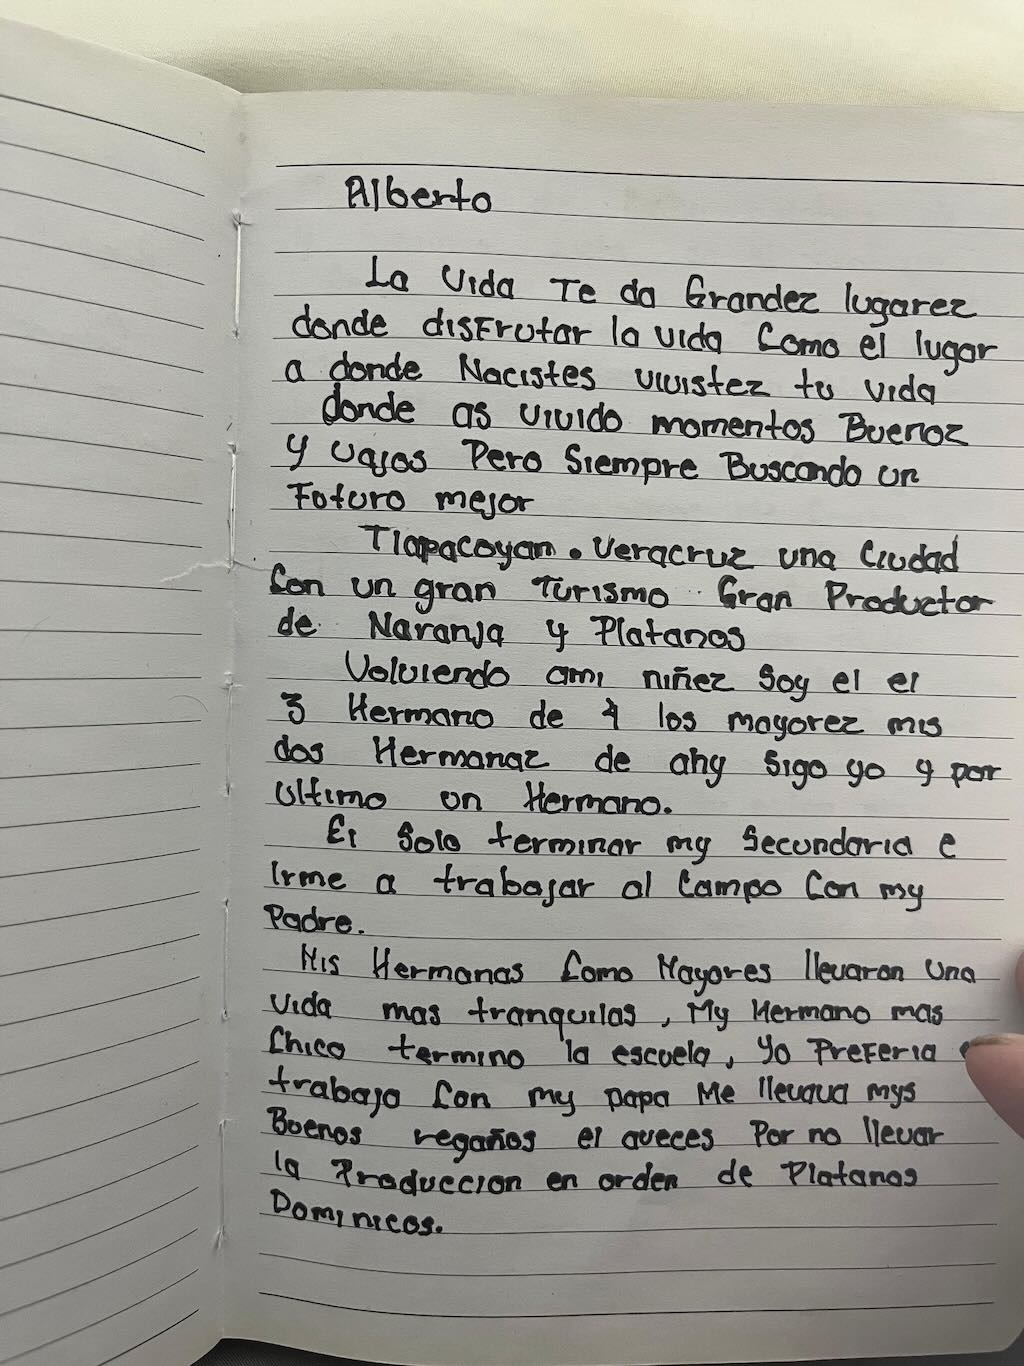 Alberto
La Vida Te da Grandez lugarez
donde disFrutar la vida Como el lugar
a donde Nacistes vivistez tu vida
donde as vivido momentos Buenoz
y vajos Pero Siempre Buscando un
Futuro mejor
Tlapacoyan. Veracruz una Ciudad
Con un gran Turismo Gran Productor
de Naranja y Platanos
Volviendo ami niñez Soy el el
3 Hermano de 4 los mayorez mis
dos Hermanaz de ahy Sigo yo y por
Ultimo un Hermano.
El Solo terminar my Secundaria e
Irme a trabajar al Campo Con my
Padre.
Mis Hermanas Como Mayores llevaron Una
Vida mas tranquilas, My Hermano mas
Chico termino la escuela, Yo PreFeria
trabajo Con my papa Me llevava mys
Buenos regaños el aveces Por no llevar
la Produccion en orden de Platanos
Dominicos.